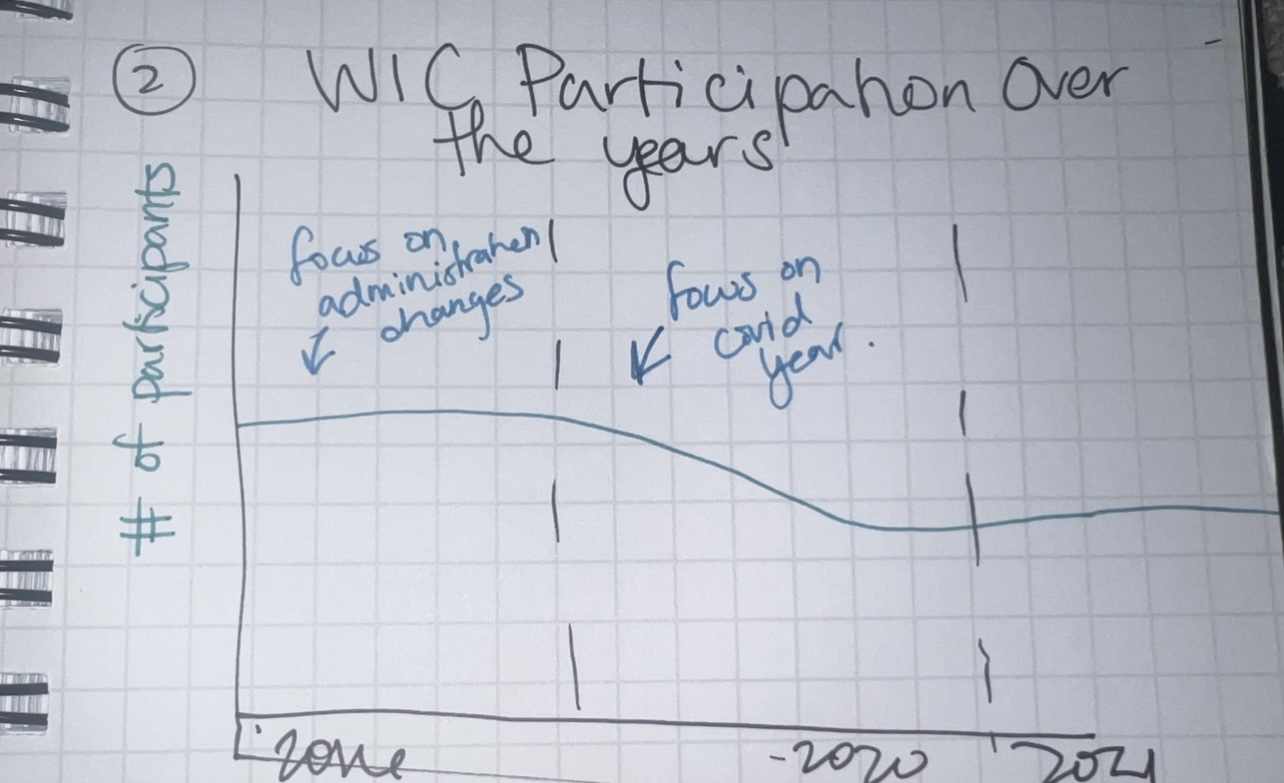 2
WIC Participation Over
the years
# of participants
focus on
administration
changes
focus on
covid
year.
-2020
2021